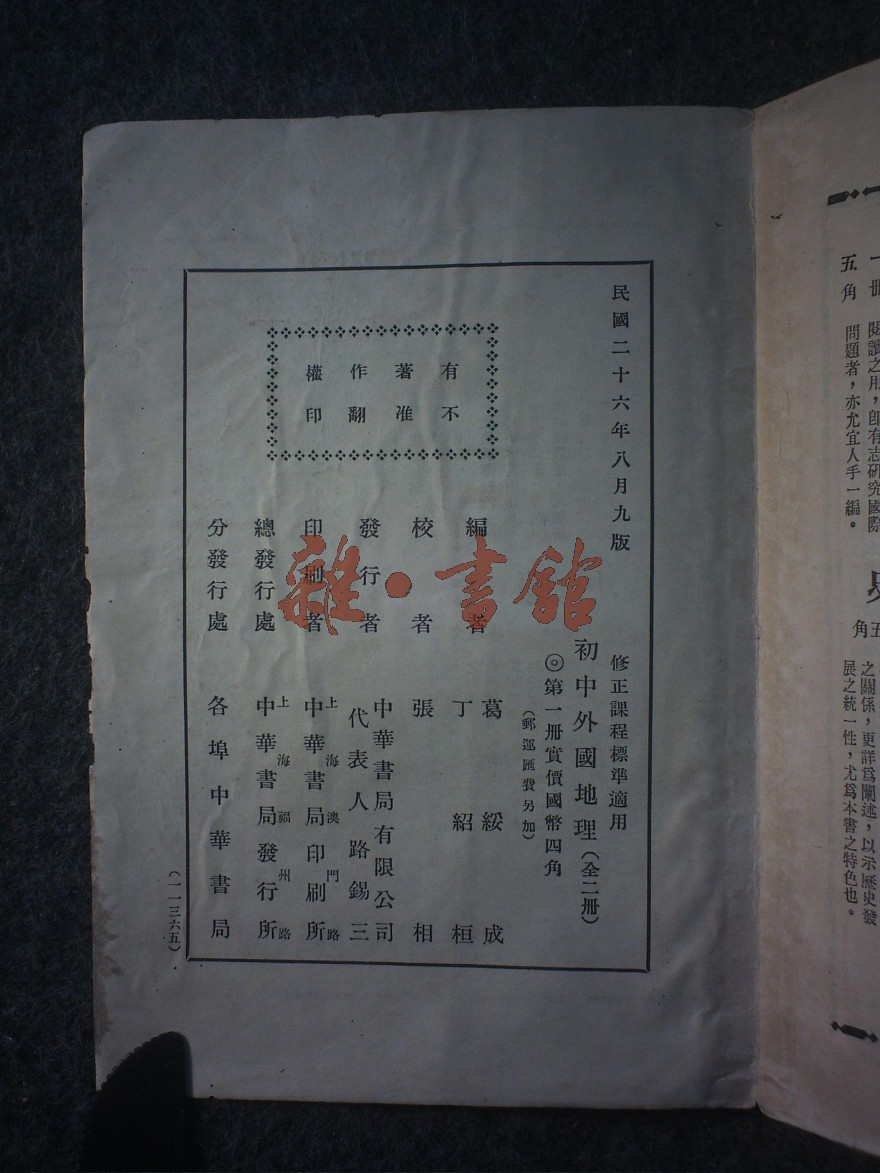 民國二十六年八月九版
修正課程標準適用
初中外國地理(全二冊)
◎第一冊實價國幣四角
(郵運匯費另加)
有著作權
不准翻印
編者 葛綏成 丁紹桓
校者 張相
發行者 中華書局有限公司 代表人路錫三
印刷者 上海澳門路 中華書局印刷所
總發行處 上海福州路 中華書局發行所
分發行處 各埠中華書局
(一一三六五)
雜·書館
一冊
五角
閱讀之用,卽有志研究國際
問題者,亦尤宜人手一編。
五角
之關係,更詳爲闡述,以示歷史發
展之統一性,尤爲本書之特色也。